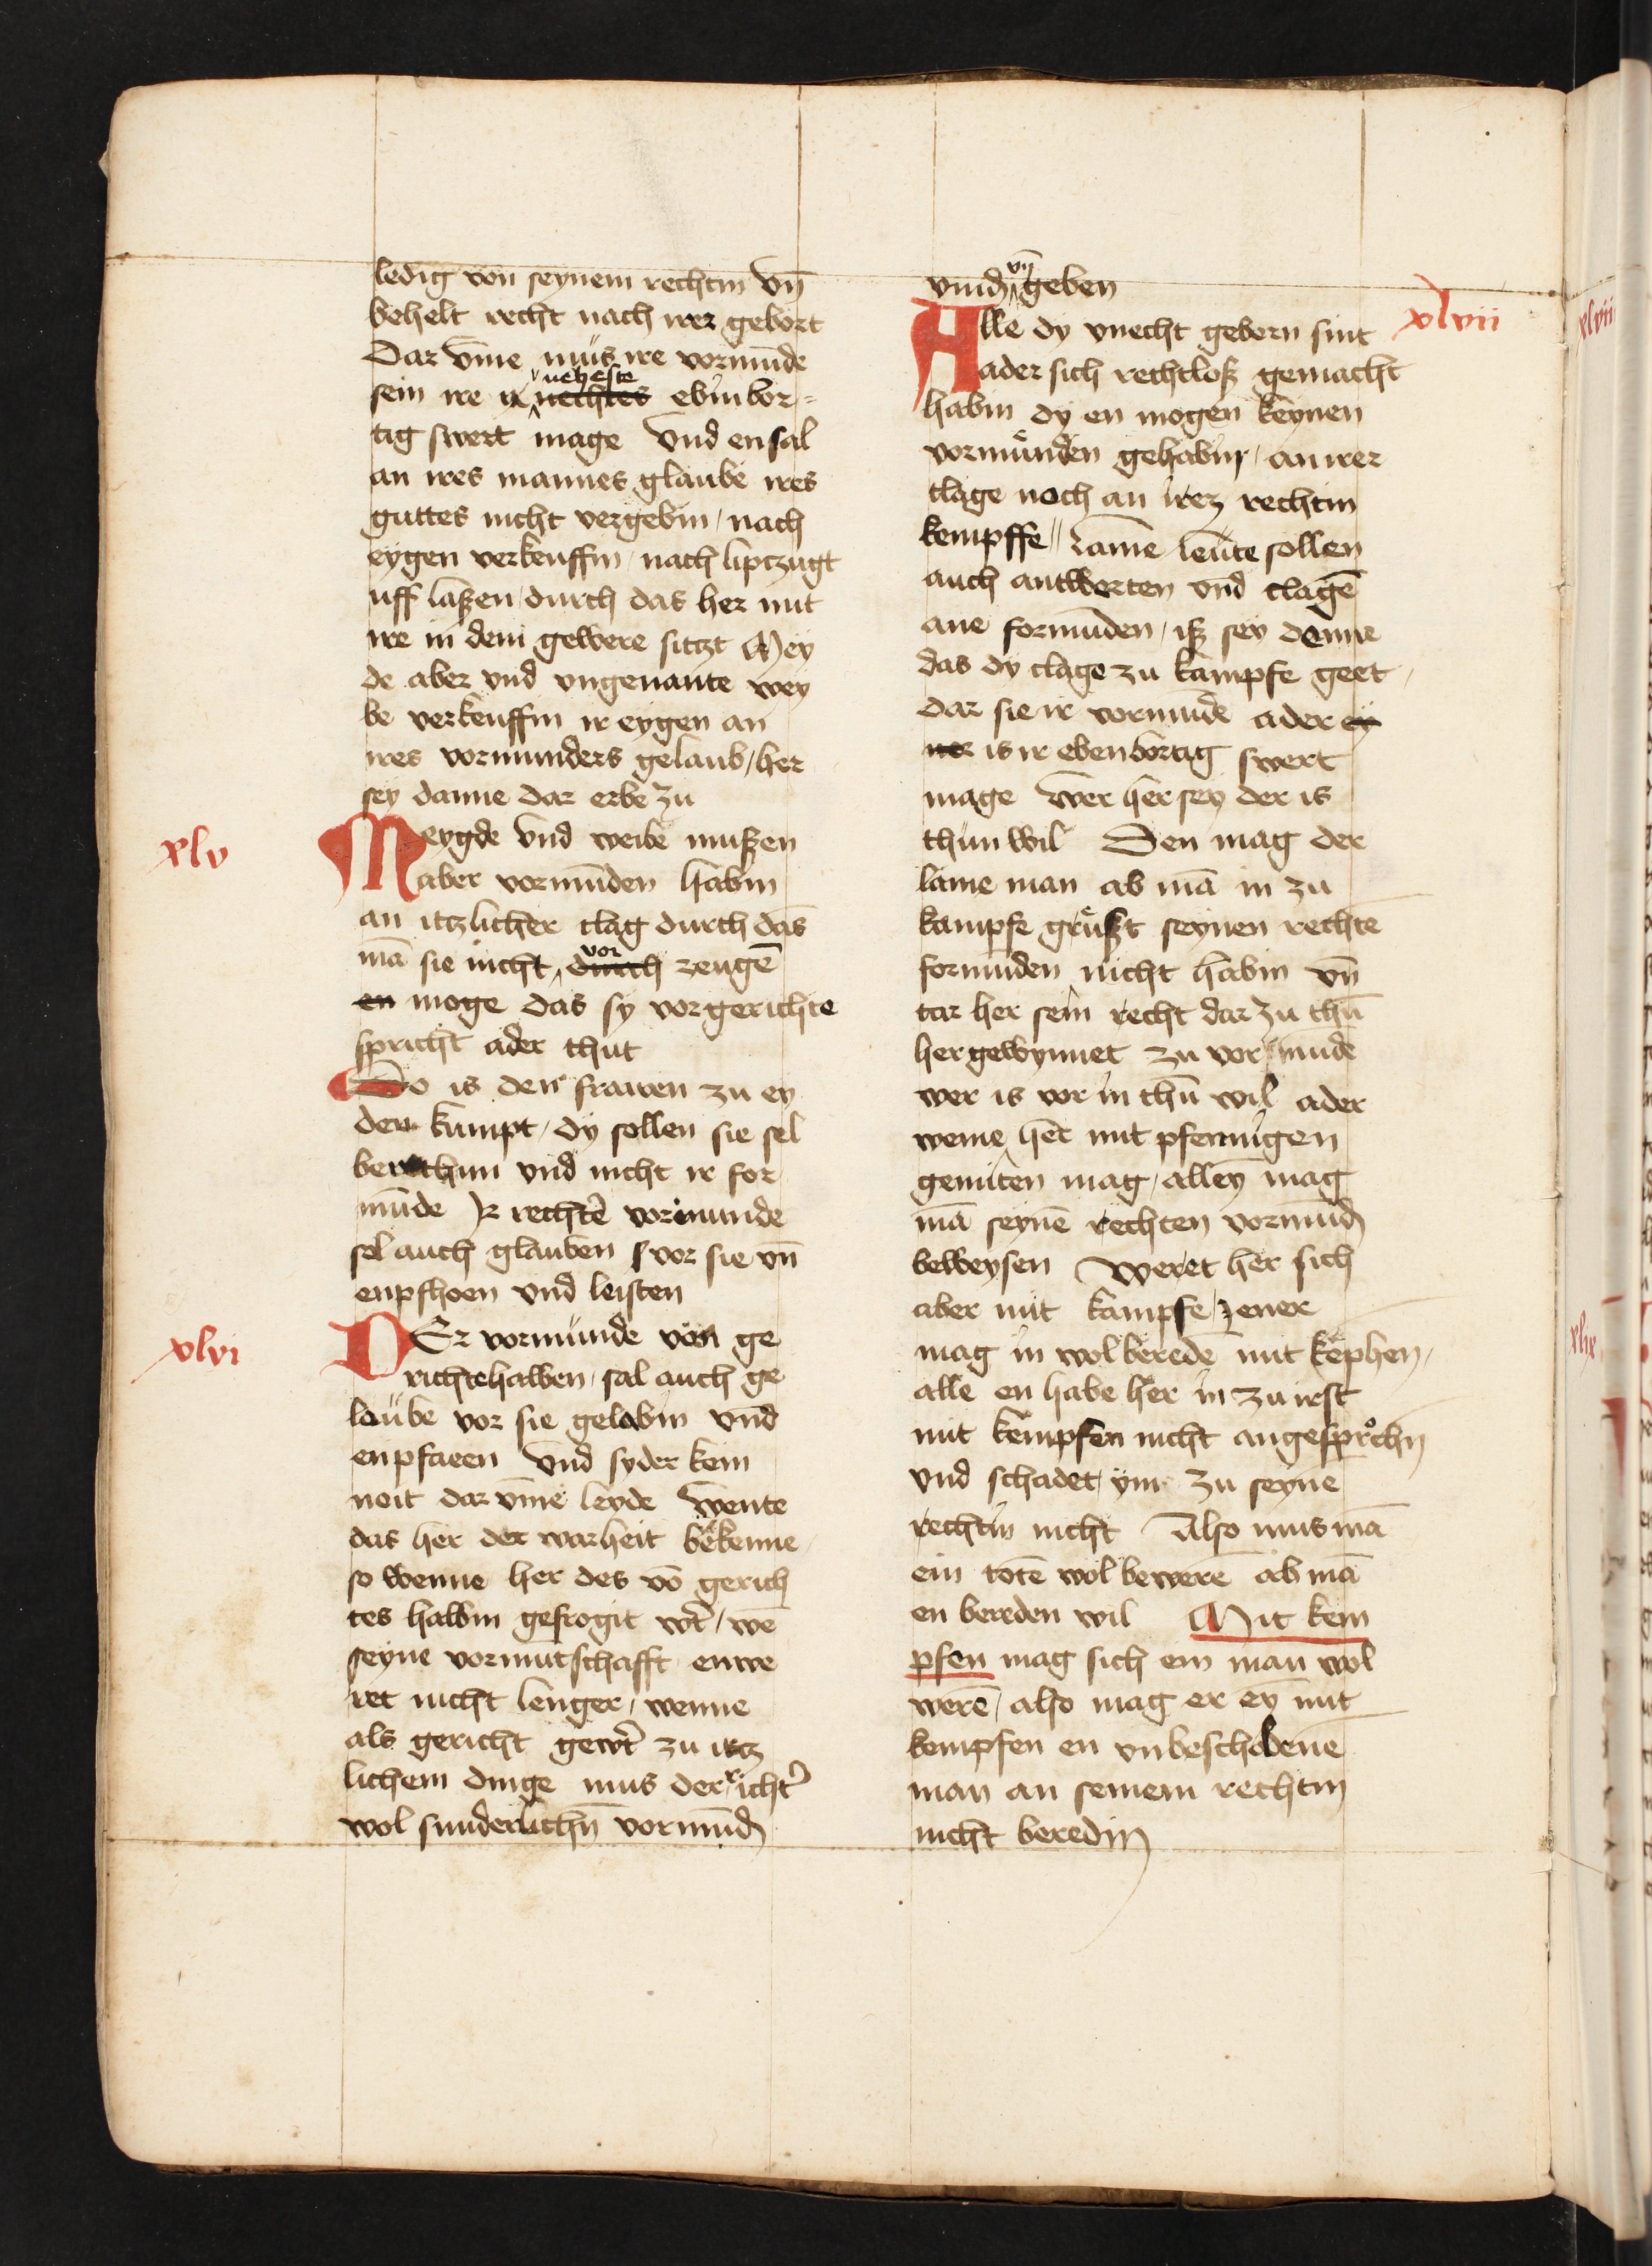 ledig von seynem rechtin vn̄
behelt recht nach irer gebort
Dar vm̄e mus ire vormūde
sein ire neheste nechstes ebinbor=
tig swert mage Vnd en sal
an ires mannes glaube ires
guttes nicht vergebin / nach
eygen verkeuffin / nach lipczugt
uff laßen / durch das her mit
ire in dem gewere sitzt Mey
de aber vnd vngenante wey
be verkeuffin ir eygen an
ires vormunders gelaub / her
sey danne dar erbe zu
xlv
Meygde vnd weibe mußen
aber vormūden habin
an itzlicher clag durch das
mā sie nicht vor durch zeugē
en moge das sy vor gerichte
spricht ader thut
Do is den frawen zu ey
den kumpt / dy sollen sie sel
ben thun vnd nicht ir for
mūde Ir rechtē vormunde
sol auch glauben vor sie vn̄
enpfhoen vnd leisten
xlvi
DEr vormunde von ge
richtehalben / sal auch ge
laube vor sie gelobin vnd
enpfaeen vnd syder kein
neit dar vm̄e leyde Wente
das her der warheit bekenne /
so wenne her des vō gerich
tes halbin gefrogit wt̄ / wē
seyne vormutschafft enwe
ret nicht lenger / wenne
als gericht gewt̄ zu itz
lichem dinge mus der richt̄
wol sunderlichn̄ vormūd
vmd vn̄ geben
xlvii
Alle dy vnecht gebern sint
ader sich rechtloß gemacht
habin dy en mogen keynen
vormunden gehabin / an irer
clage noch an irez rechtin
kempffe // Lame leute sollen
auch antworten vnd clagē
ane formuden / iß sey denne
das dy clage zu kampfe geet /
dar sie ir vormude ader ey
ner is ir ebenbortig swert
mage Wer her sey der is
thun wil Den mag der
lame man ab mā in zu
kampfe grußt seynen rechtē
formūden nicht habin vn̄
tar her sein recht dar zu thū
her gewynnet zu vor mude
wer is vor in thū wil ader
weme her mit pfennigen
gemiten mag / alley mag
mā seynē rechten vormūd
beweysen Weret her sich
aber mit kampfe / zener
mag in wol beredē mit kephen /
alle en habe her in zu irst
mit kempfen nicht angesprochn
vnd schadet ym zu seyne
rechtin nicht Also mus mā
ein totē wol bewerē ab mā
en bereden wil Mit kem
pfen mag sich ein man wol
werē / also mag er ey mit
kempfen en vnbescholdene
man an seinem rechtin
nicht beredin